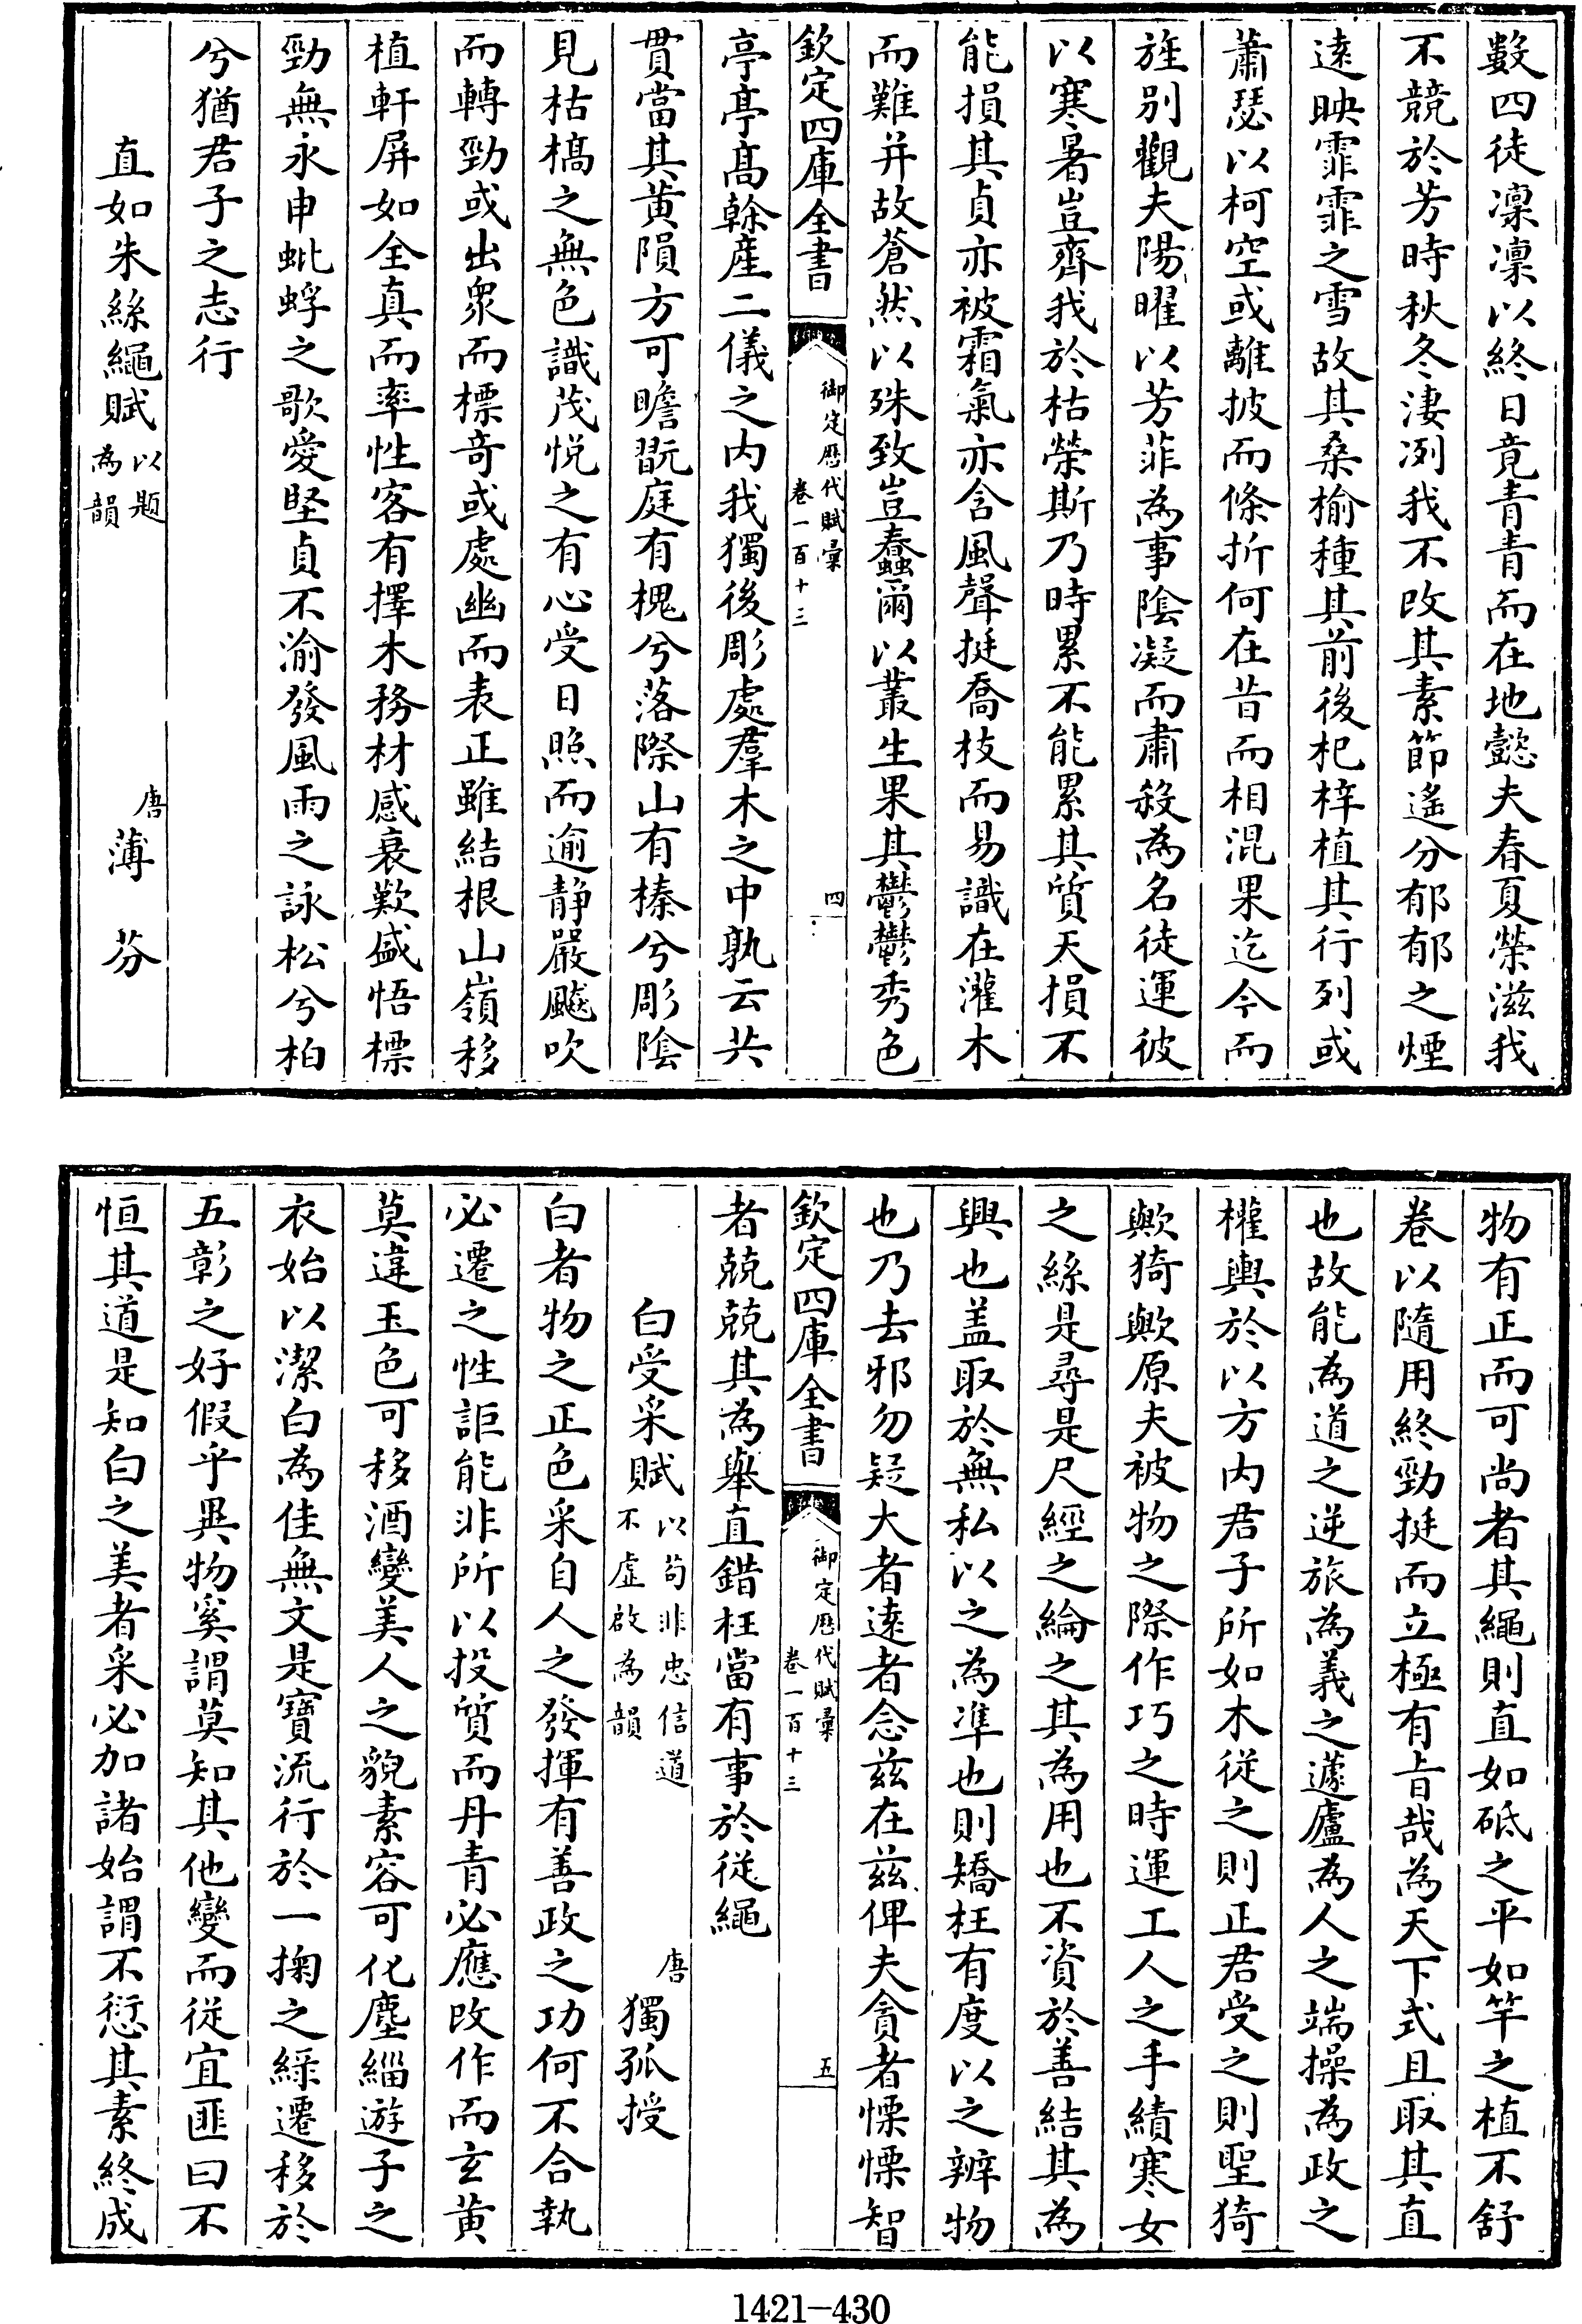 數四徒凜凜以終日竟青青而在地懿夫春夏榮滋我
不競於芳時秋冬淒冽我不改其素節遙分郁郁之煙
逺映霏霏之雪故其桑榆種其前後杞梓植其行列或
蕭瑟以柯空或離披而條折何在昔而相混果迄今而
旌别觀夫陽曜以芳菲為事陰凝而肅殺為名徒運彼
以寒暑豈齊我於枯榮斯乃時累不能累其質天損不
能損其貞亦被霜氣亦含風聲挺喬枝而易識在灌木
而難并故蒼然以殊致豈蠢爾以叢生果其鬱鬱秀色
欽定四庫全書
御定歷代賦彙
卷一百十三
四
亭亭髙榦産二儀之内我獨後彫處羣木之中孰云共
貫當其黄隕方可瞻翫庭有槐兮落際山有榛兮彫陰
見枯槁之無色識茂悦之有心受日照而逾静嚴飈吹
而轉勁或出衆而標奇或處幽而表正雖結根山嶺移
植軒屏如全真而率性客有擇木務材感衰歎盛悟標
勁無永申蚍蜉之歌愛堅貞不渝發風雨之詠松兮柏
兮猶君子之志行
直如朱絲繩賦以題為韻
唐薄芬
物有正而可尚者其繩則直如砥之平如竿之植不舒
卷以隨用終勁挺而立極有旨哉為天下式且取其直
也故能為道之逆旅為義之蘧廬為人之端操為政之
權輿於以方内君子所如木從之則正君受之則聖猗
歟猗歟原夫被物之際作巧之時運工人之手績寒女
之絲是尋是尺經之綸之其為用也不資於善結其為
興也盖取於無私以之為準也則矯枉有度以之辨物
也乃去邪勿疑大者逺者念兹在兹俾夫貪者慄慄智
欽定四庫全書
御定歷代賦彙
卷一百十三
五
者兢兢其為舉直錯枉當有事於從繩
白受采賦以苟非忠信道不虛啟為韻
唐獨孤授
白者物之正色采自人之發揮有善政之功何不合執
必遷之性詎能非所以投質而丹青必應改作而玄黄
莫違玉色可移酒變美人之貌素容可化塵緇遊子之
衣始以潔白為佳無文是寶流行於一掬之綵遷移於
五彰之好假乎異物奚謂莫知其他變而從宜匪曰不
恒其道是知白之美者采必加諸始謂不愆其素終成
1421-430